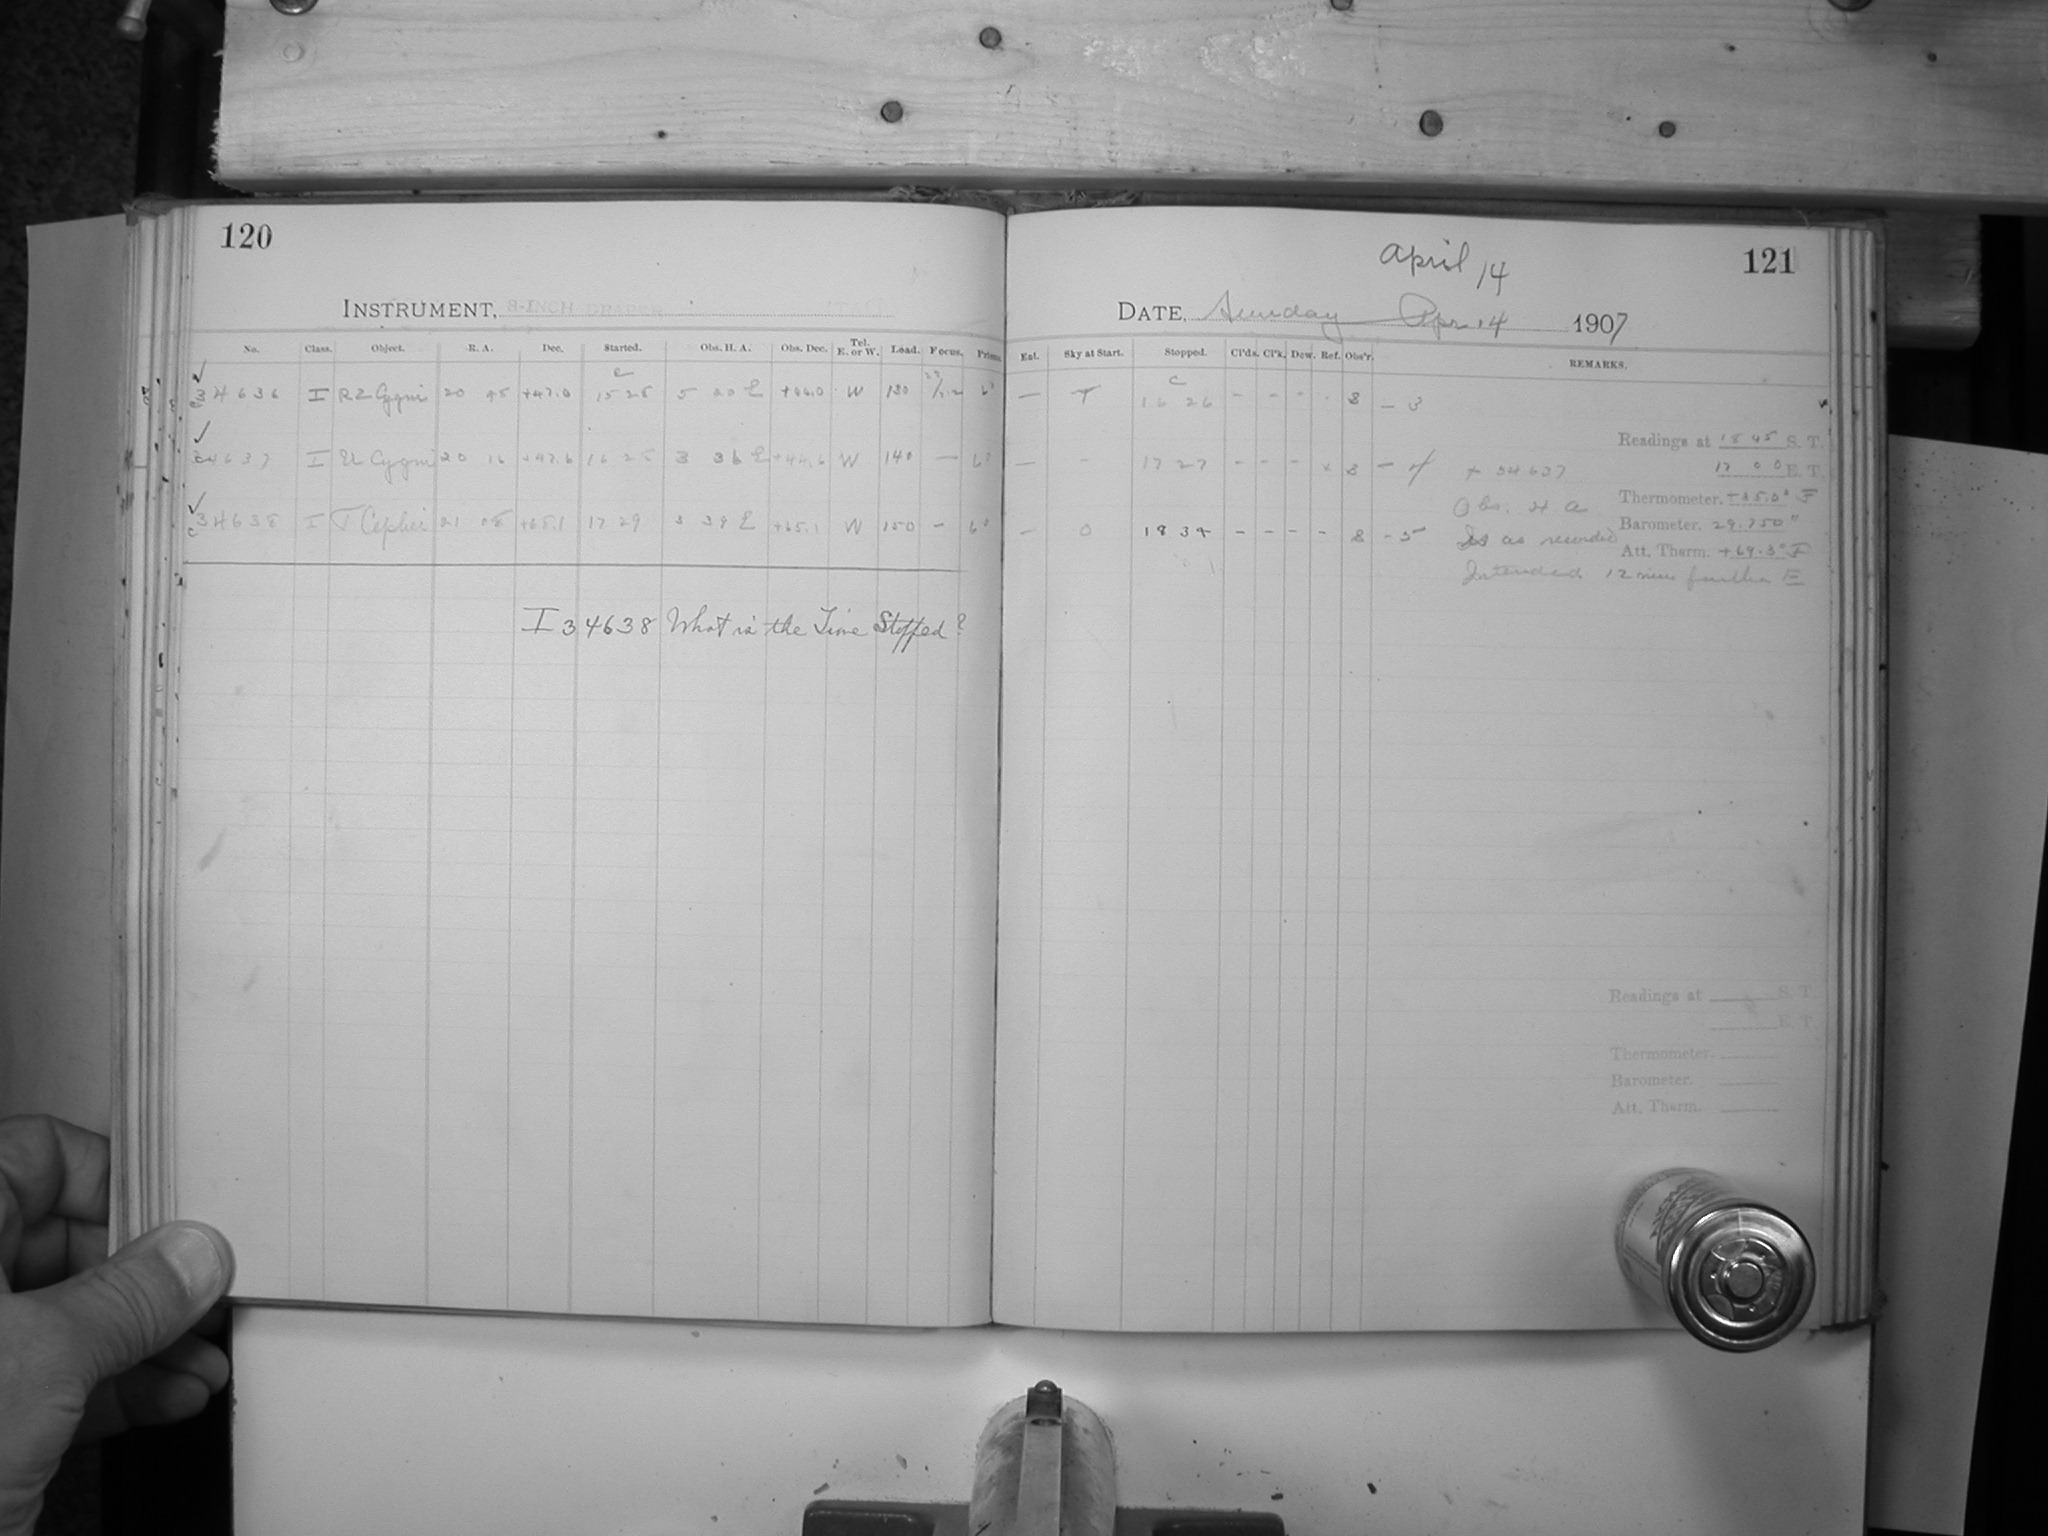 120
INSTRUMENT, 8-INCH DRAPER
No. Class. Object. R. A. Dec. Started. Obs. H. A. Obs. Dec. Tel. E. or W. Load. Focus. Prisms
34636 I RZ Cygni 20 +47.0 15 25 5 20 E W 130
34637 I U Cygni 20 16 +47.6 16 25 3 36 E +44.6 W 140 —
34638 I T Cephei 21 08 +65.1 17 29 3 39 E +65.1 W 150 —
I 34638 What is the Time Stopped?
April 14
121
DATE, Sunday Apr 14 1907
Est. Sky at Start. Stopped. Cl'ds. Cl'k. Dew. Ref. Obs'r. REMARKS.
— 16 26 - - - - 8 - 3
— - 17 27 - - - x 8 - 4 x 34637
— 0 18 34 - - - - 8 - 5
Obs. H A
Is as recorded
Intended 12 min further E
Readings at 18 45 S. T.
17 00 E. T.
Thermometer. +35.0° F
Barometer. 29.750"
Att. Therm. +69.3° F
Readings at S. T.
E. T.
Thermometer.
Barometer.
Att. Therm.